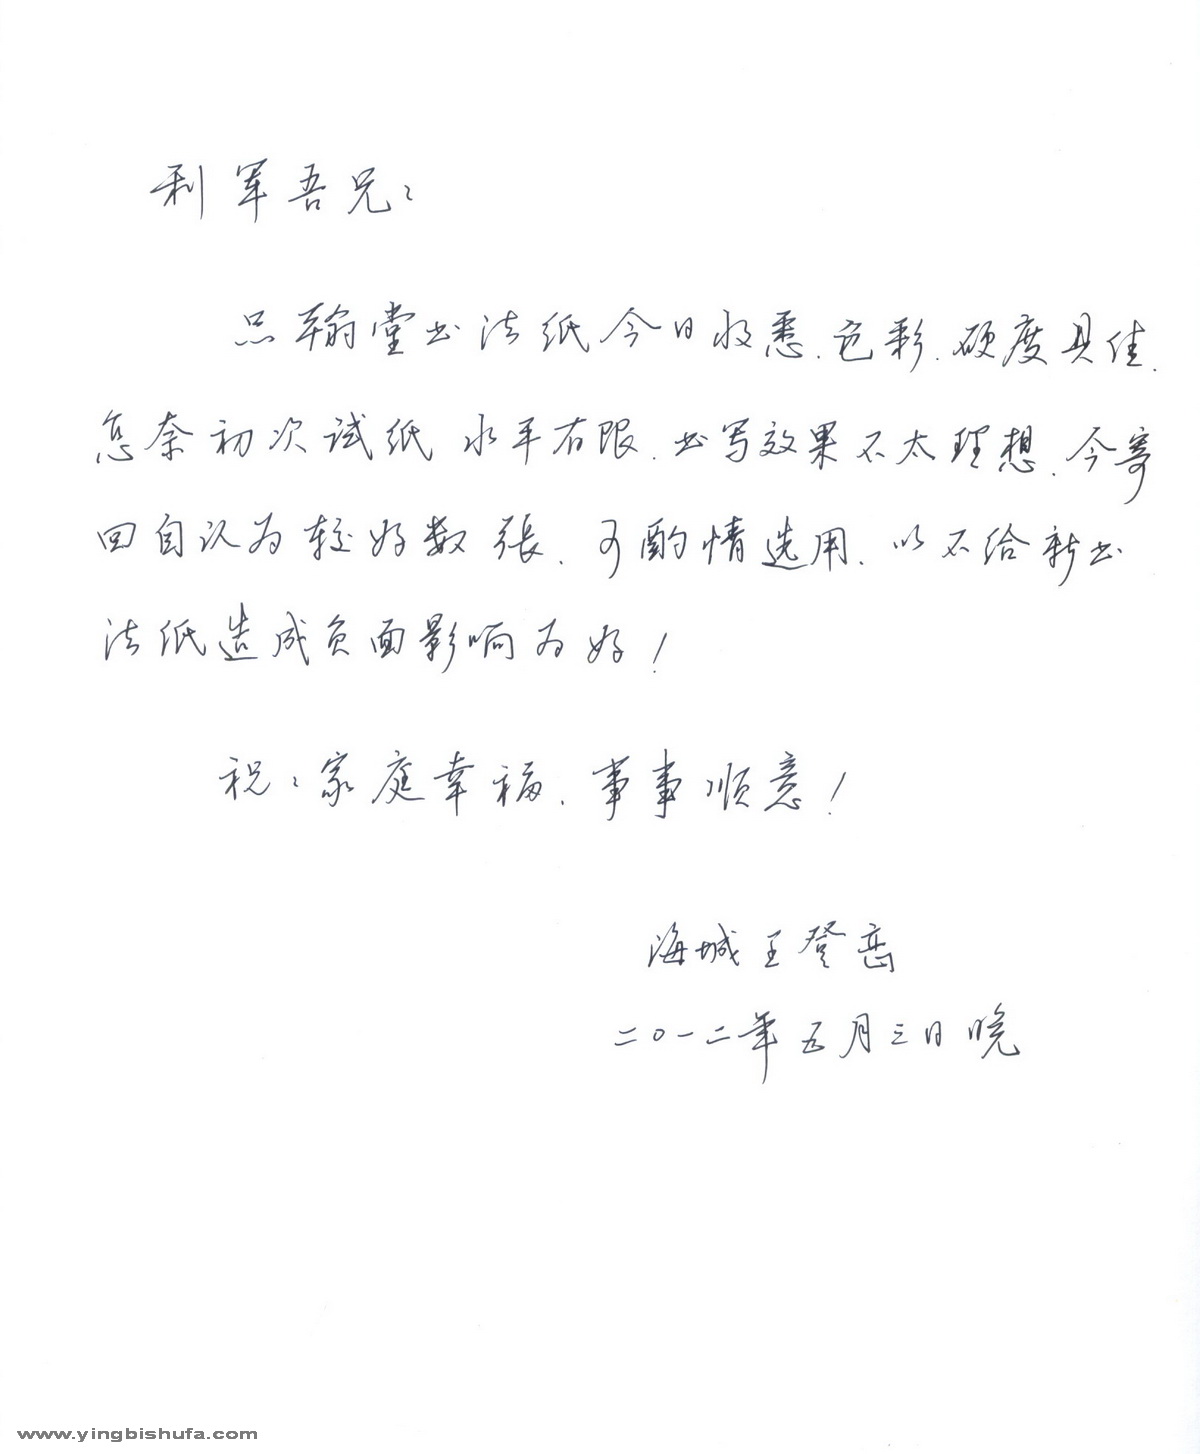 利军吾兄：
品翰堂书法纸今日收悉.色彩.硬度具佳.
怎奈初次试纸 水平有限.书写效果不太理想.今寄
回自认为较好数張.可酌情选用.以不给新书
法纸造成负面影响为好！
祝：家庭幸福.事事顺意！
海城王登峦
二〇一二年五月三日晚
www.yingbishufa.com